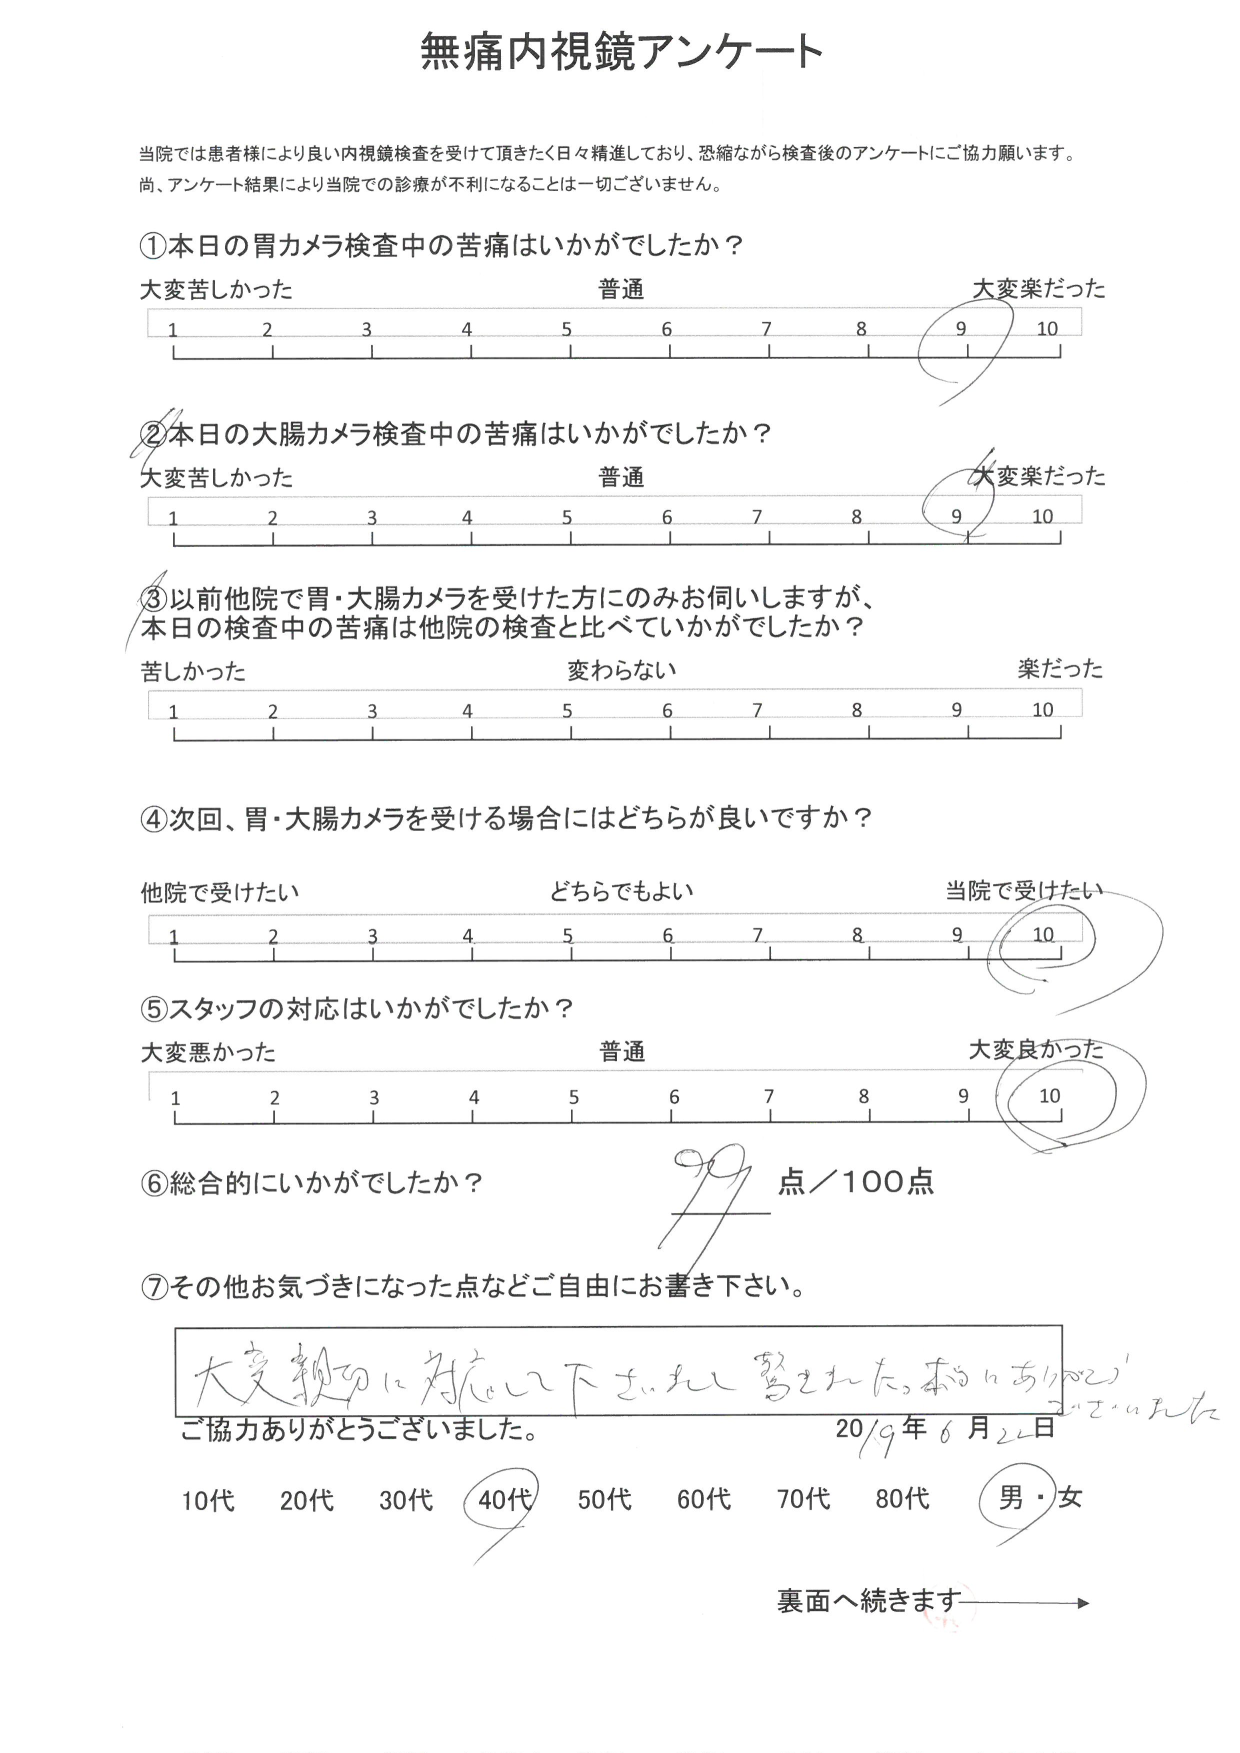 無痛内視鏡アンケート
当院では患者様により良い内視鏡検査を受けて頂きたく日々精進しており、恐縮ながら検査後のアンケートにご協力願います。
尚、アンケート結果により当院での診療が不利になることは一切ございません。
①本日の胃カメラ検査中の苦痛はいかがでしたか？
大変苦しかった 普通 大変楽だった
1 2 3 4 5 6 7 8 9 10
②本日の大腸カメラ検査中の苦痛はいかがでしたか？
大変苦しかった 普通 大変楽だった
1 2 3 4 5 6 7 8 9 10
③以前他院で胃・大腸カメラを受けた方にのみお伺いしますが、
本日の検査中の苦痛は他院の検査と比べていかがでしたか？
苦しかった 変わらない 楽だった
1 2 3 4 5 6 7 8 9 10
④次回、胃・大腸カメラを受ける場合にはどちらが良いですか？
他院で受けたい どちらでもよい 当院で受けたい
1 2 3 4 5 6 7 8 9 10
⑤スタッフの対応はいかがでしたか？
大変悪かった 普通 大変良かった
1 2 3 4 5 6 7 8 9 10
⑥総合的にいかがでしたか？ 99 点／100点
⑦その他お気づきになった点などご自由にお書き下さい。
大変親切に対応して下さいまして驚きました。本当にありがとう
ございました
ご協力ありがとうございました。 2019年6月22日
10代 20代 30代 40代 50代 60代 70代 80代 男・女
裏面へ続きます